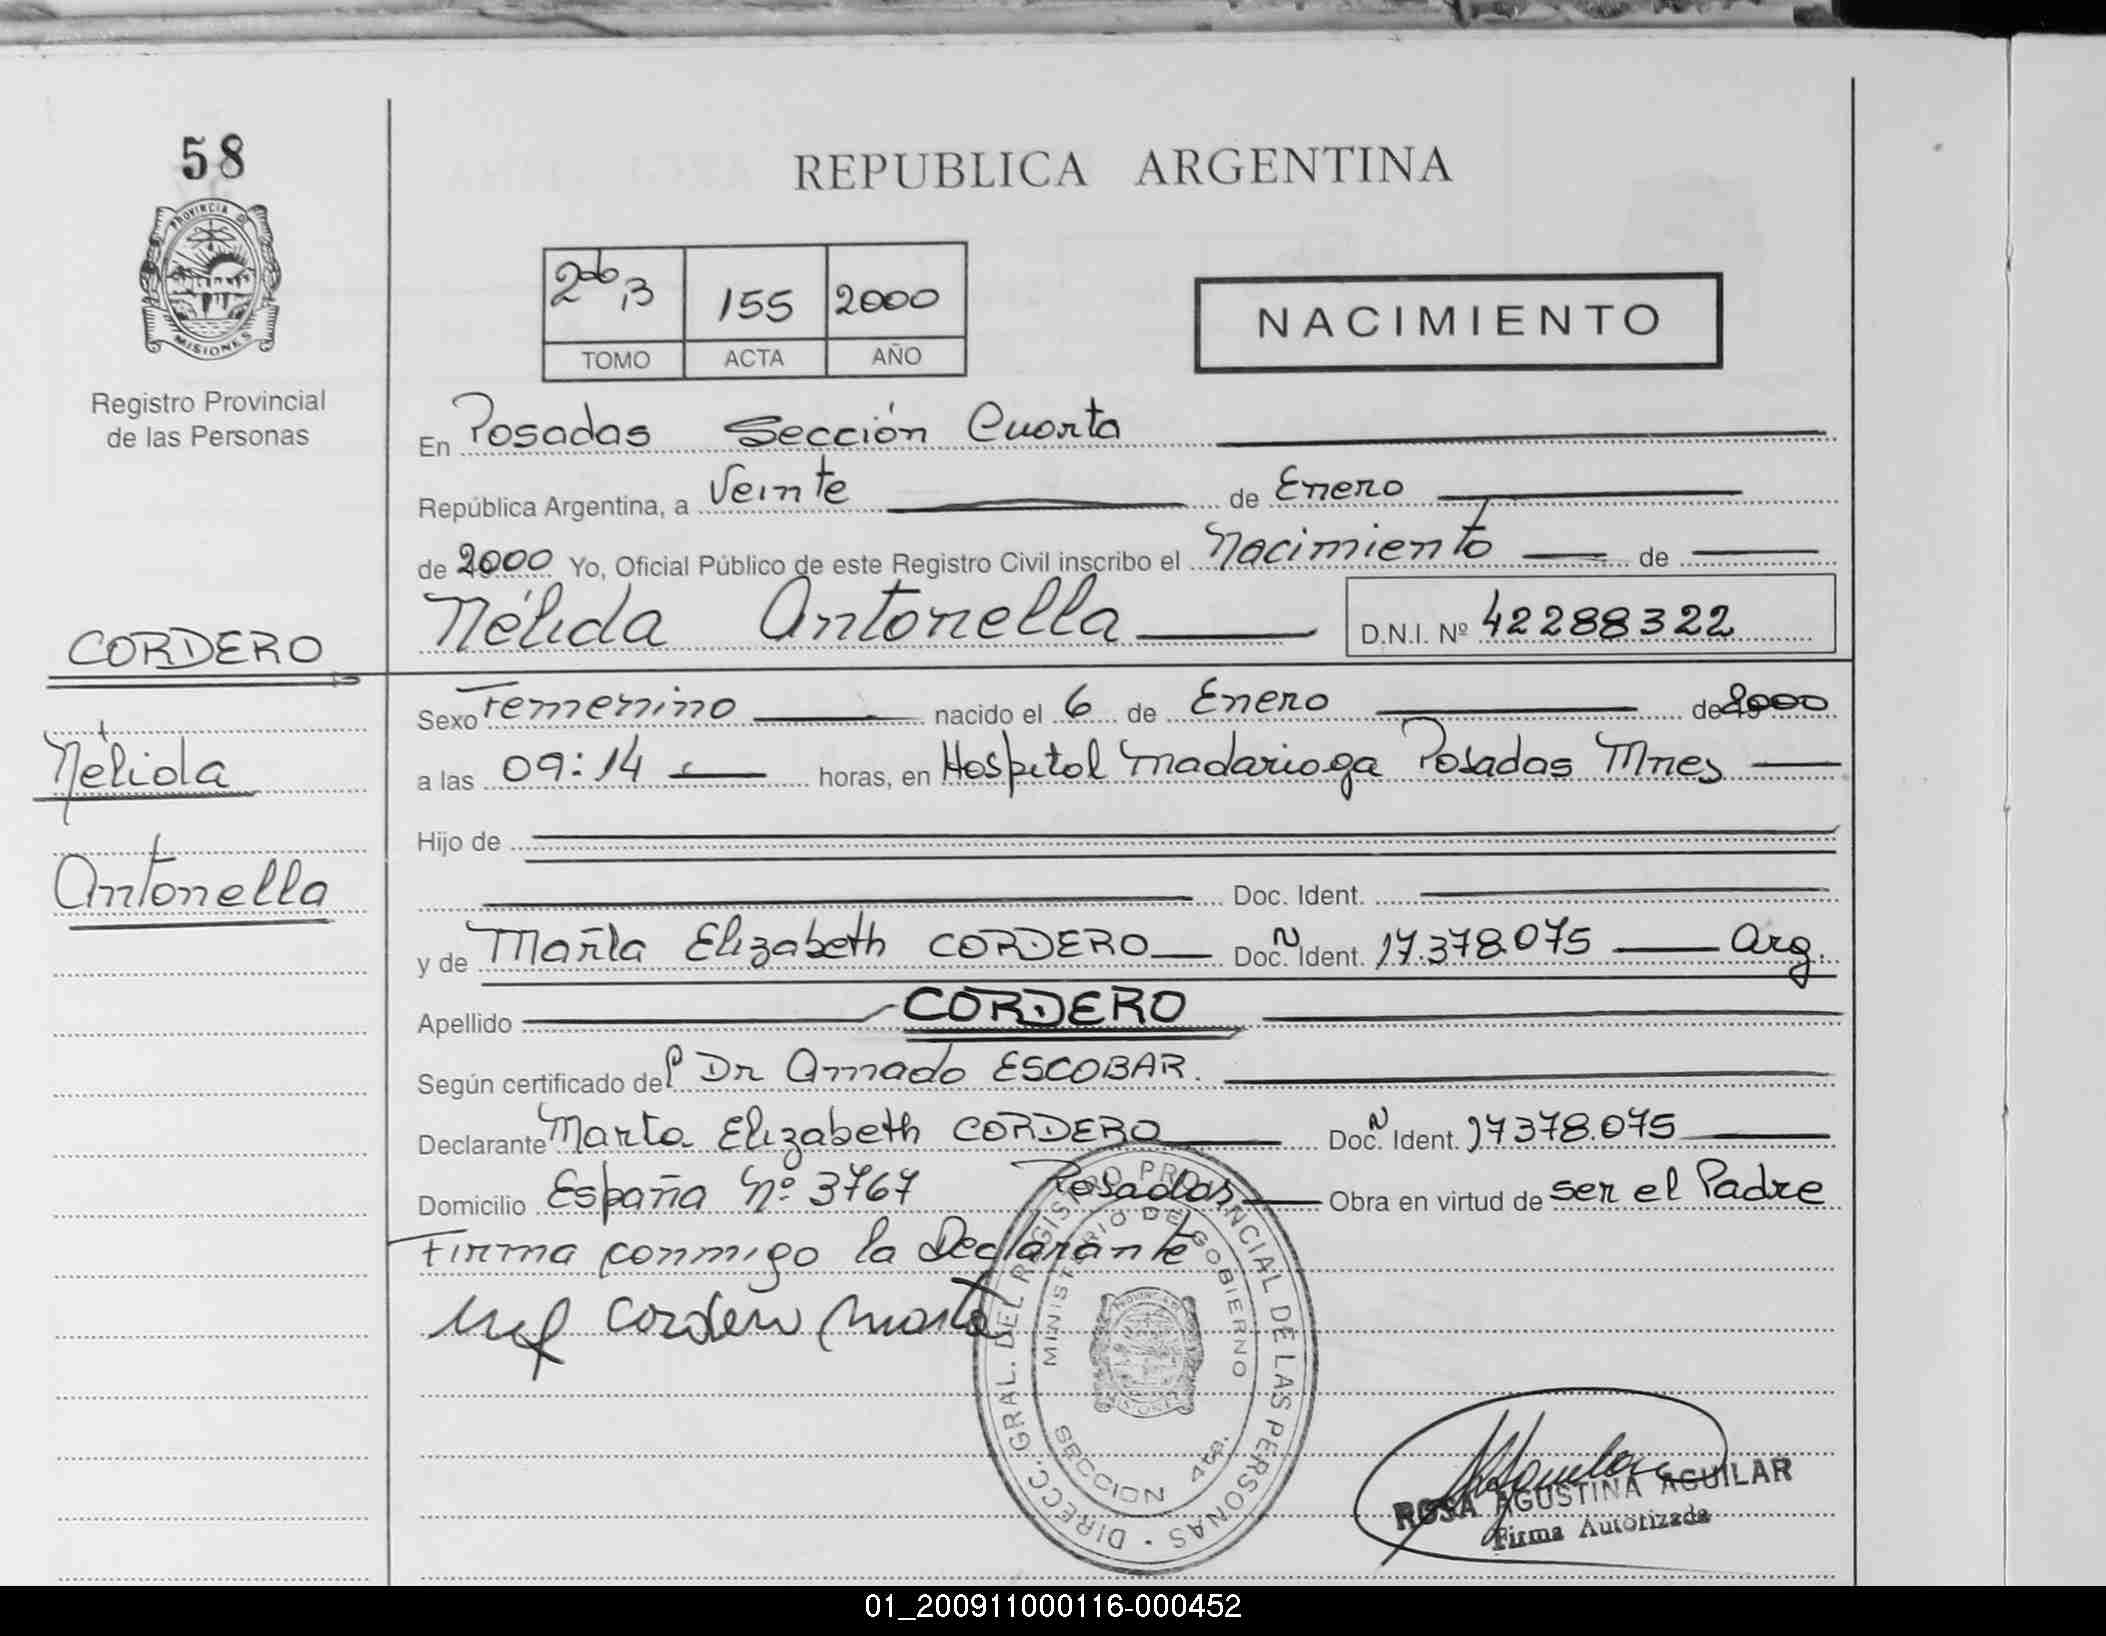 58
PROVINCIA DE
MISIONES
Registro Provincial
de las Personas
REPUBLICA ARGENTINA
155 2000
TOMO ACTA AÑO
NACIMIENTO
En Posadas Sección Cuarta
República Argentina, a Veinte de Enero
de 2000 Yo, Oficial Público de este Registro Civil inscribo el Nacimiento de
Nélida Antonella D.N.I. Nº 42288322
CORDERO
Nélida
Antonella
Sexo Femenino nacido el 6 de Enero de 2000
a las 09:14 horas, en Hospital Madariaga Posadas Mnes
Hijo de
Doc. Ident.
y de Marta Elizabeth CORDERO Doc. N Ident. 17.378.075 Arg.
Apellido CORDERO
Según certificado del Dr Amado ESCOBAR.
Declarante Marta Elizabeth CORDERO Doc. N Ident. 17378.075
Domicilio España Nº 3767 Posadas Obra en virtud de ser el Padre
Firma conmigo la Declarante
Cordero Marta
DIRECC. GRAL. DEL REGISTRO PROVINCIAL DE LAS PERSONAS
MINISTERIO DE GOBIERNO
SECCION 4ta.
ROSA AGUSTINA AGUILAR
Firma Autorizada
01_200911000116-000452